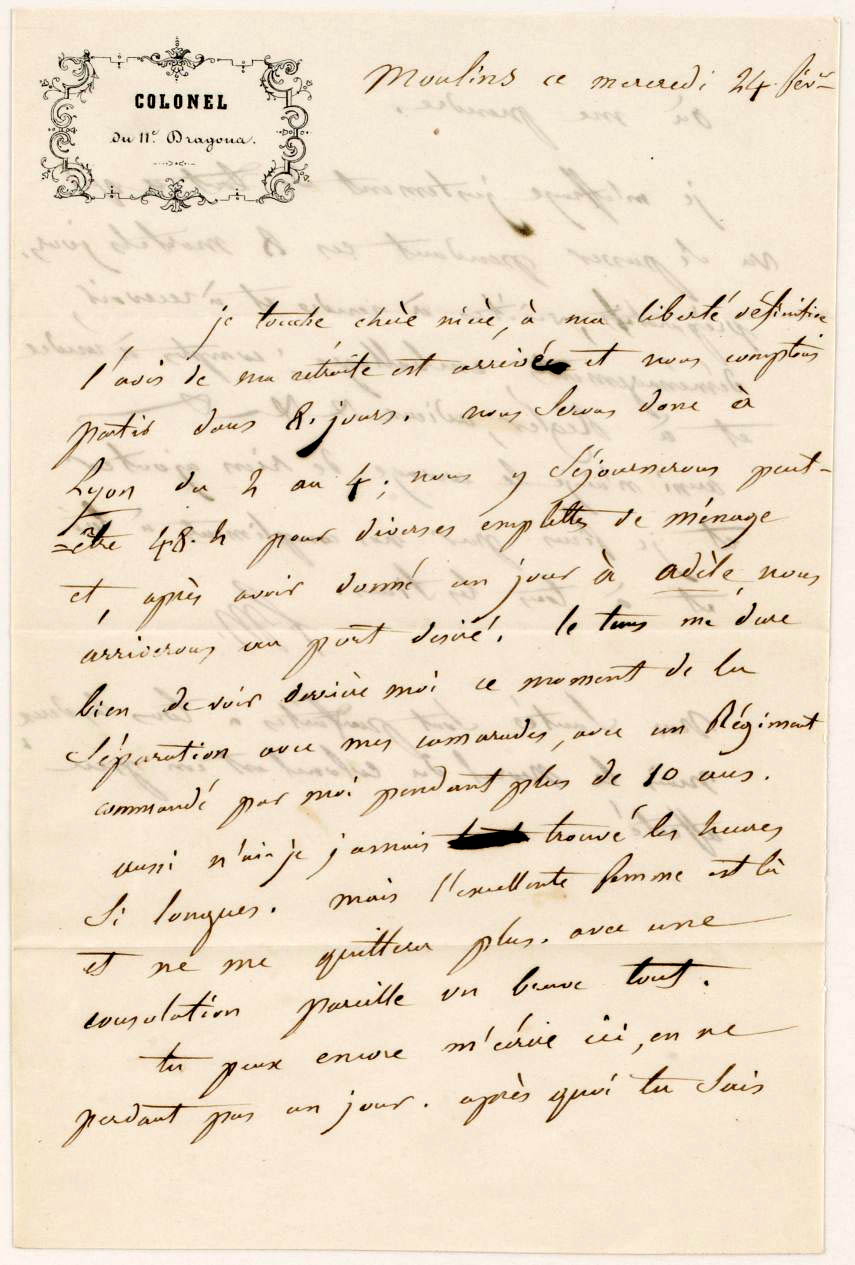 COLONEL
du 11e. Dragons.
Moulins ce mercredi 24 févr
je touche chère nièce, à ma liberté définitive
l'avis de ma retraite est arrivée et nous comptons
partir dans 8. jours. nous serons donc à
Lyon du 2 au 4; nous y séjournerons peut-
=être 48. h pour diverses emplettes de ménage
et, après avoir donné un jour à adèle nous
arriverons au port desiré. le tems me dure
bien de voir derrière moi ce moment de la
séparation avec mes camarades, avec un Régiment
commandé par moi pendant plus de 10 ans.
aussi n'ai-je jamais trouvé les heures
si longues. mais l'excellente femme est là
et ne me quittera plus. avec une
consolation pareille on brave tout.
tu peux encore m'écrire ici, en ne
perdant pas un jour. après quoi tu sais